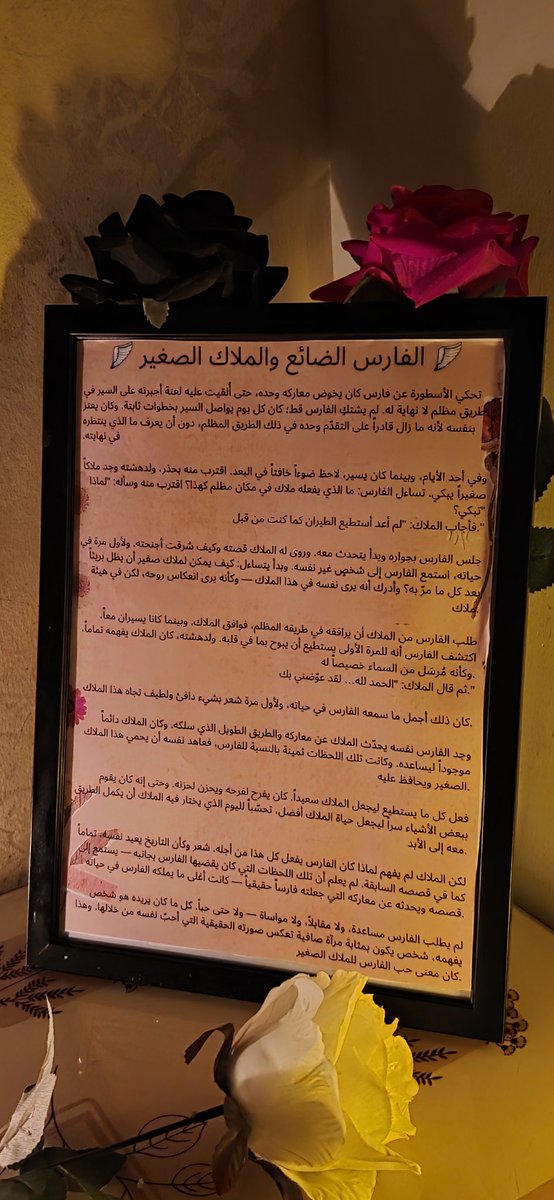 الفارس الضائع والملاك الصغير
تحكي الأسطورة عن فارس كان يخوض معاركه وحده، حتى أُلقيت عليه لعنة أجبرته على السير في
طريق مظلم لا نهاية له. لم يشتكِ الفارس قط؛ كان كل يوم يواصل السير بخطوات ثابتة. وكان يعتز
بنفسه لأنه ما زال قادراً على التقدّم وحده في ذلك الطريق المظلم، دون أن يعرف ما الذي ينتظره
في نهايته.
وفي أحد الأيام، وبينما كان يسير، لاحظ ضوءاً خافتاً في البعد. اقترب منه بحذر، ولدهشته وجد ملاكاً
صغيراً يبكي. تساءل الفارس: ما الذي يفعله ملاك في مكان مظلم كهذا؟ اقترب منه وسأله: "لماذا
تبكي؟"
فأجاب الملاك: "لم أعد أستطيع الطيران كما كنت من قبل."
جلس الفارس بجواره وبدأ يتحدث معه. وروى له الملاك قصته وكيف سُرقت أجنحته. ولأول مرة في
حياته، استمع الفارس إلى شخصٍ غير نفسه. وبدأ يتساءل: كيف يمكن لملاك صغير أن يظل بريئاً
بعد كل ما مرّ به؟ وأدرك أنه يرى نفسه في هذا الملاك — وكأنه يرى انعكاس روحه، لكن في هيئة
ملاك.
طلب الفارس من الملاك أن يرافقه في طريقه المظلم، فوافق الملاك. وبينما كانا يسيران معاً،
اكتشف الفارس أنه للمرة الأولى يستطيع أن يبوح بما في قلبه. ولدهشته، كان الملاك يفهمه تماماً،
وكأنه مُرسَل من السماء خصيصاً له.
ثم قال الملاك: "الحمد لله... لقد عوّضني بك."
كان ذلك أجمل ما سمعه الفارس في حياته، ولأول مرة شعر بشيء دافئ ولطيف تجاه هذا الملاك.
وجد الفارس نفسه يحدّث الملاك عن معاركه والطريق الطويل الذي سلكه. وكان الملاك دائماً
موجوداً ليساعده. وكانت تلك اللحظات ثمينة بالنسبة للفارس، فعاهد نفسه أن يحمي هذا الملاك
الصغير ويحافظ عليه.
فعل كل ما يستطيع ليجعل الملاك سعيداً. كان يفرح لفرحه ويحزن لحزنه. وحتى إنه كان يقوم
ببعض الأشياء سراً ليجعل حياة الملاك أفضل، تحسّباً لليوم الذي يختار فيه الملاك أن يكمل الطريق
معه إلى الأبد.
لكن الملاك لم يفهم لماذا كان الفارس يفعل كل هذا من أجله. شعر وكأن التاريخ يعيد نفسه، تماماً
كما في قصصه السابقة. لم يعلم أن تلك اللحظات التي كان يقضيها الفارس بجانبه — يستمع إلى
قصصه ويحدثه عن معاركه التي جعلته فارساً حقيقياً — كانت أغلى ما يملكه الفارس في حياته
لم يطلب الفارس مساعدة، ولا مقابلاً، ولا مواساة — ولا حتى حباً. كل ما كان يريده هو شخص
يفهمه، شخص يكون بمثابة مرآة صافية تعكس صورته الحقيقية التي أحبّ نفسه من خلالها. وهذا
كان معنى حب الفارس للملاك الصغير.